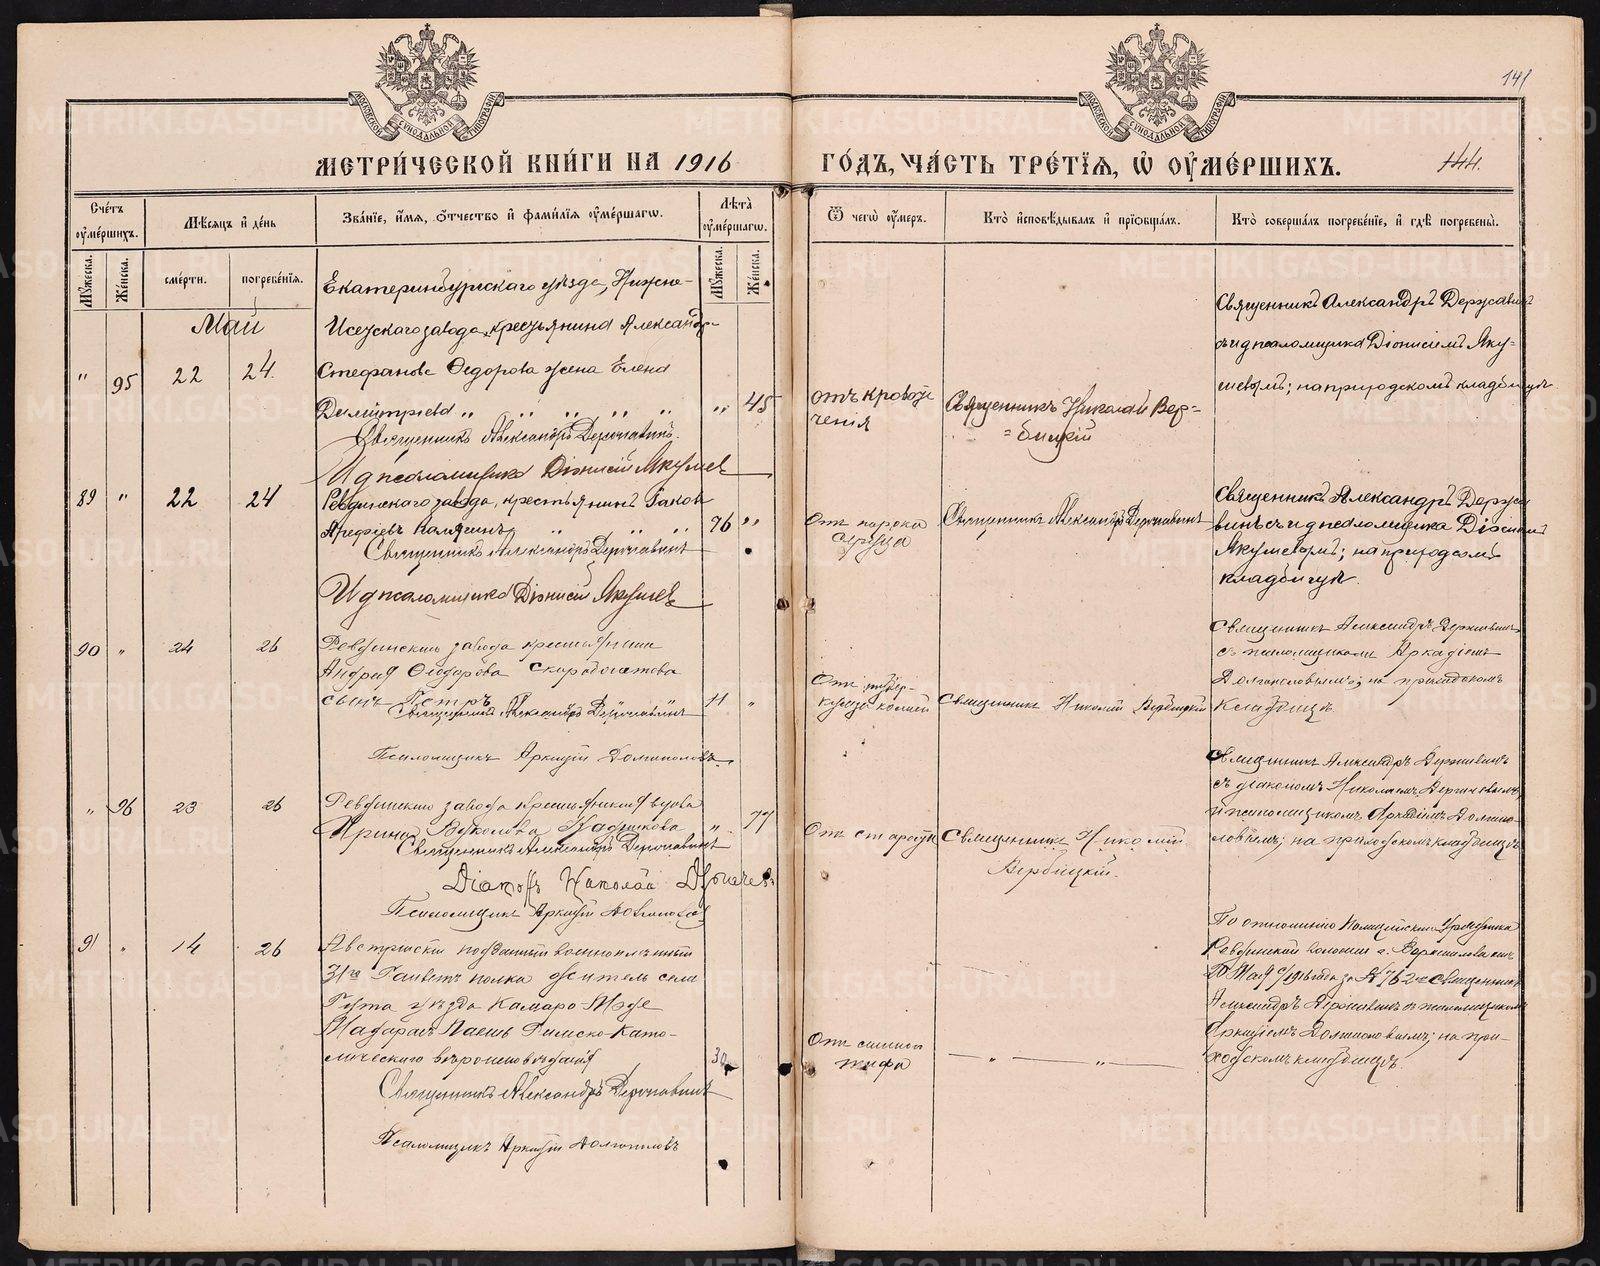 141
МЕТРИ́ЧЕСКОЙ КНИ́ГИ НА 1916
ГО́ДЪ, ЧА́СТЬ ТРЕ́ТІѦ, Ѡ҆ ОУ҆МЕ́РШИХЪ.
144.
Сче́тъ оу҆ме́ршихъ.
Мѣ́сяцъ и҆ де́нь
Зва́нїе, и҆́мѧ, ѻ҆́тчество и҆ фами́лїѧ оу҆ме́ршагѡ.
Лѣ́та оу҆ме́ршагѡ.
Ѿ чегѡ̀ оу҆́меръ.
Кто̀ и҆сповѣ́дывалъ и҆ прїѡбща́лъ.
Кто̀ соверша́лъ погребе́нїе, и҆ гдѣ̀ погребены̀.
Му́жеска.
Же́нска.
сме́рти.
погребе́нїѧ.
Му́жеска.
Же́нска.
Май
Екатеринбургскаго уѣзда, Нижне-
Исетскаго завода, крестьянина Александр-
" 95 22 24. Стефанова Ѳедорова жена Елена
Димитріева " " " " " " 45
Священникъ Александръ Державинъ.
И д псаломщика Діонисій Якушевъ
отъ кровоте
ченія
Священникъ Николай Вер-
=бицкій
Священникъ Александръ Державинъ
съ и д псаломщика Діонисіемъ Яку-
шевымъ; на приходскомъ кладбищѣ.
89 " 22 24 Ревдинскаго завода, крестьянинъ Іаковъ
Арефіевъ Калягинъ " " " 76 "
Священникъ Александръ Державинъ
И д псаломщика Діонисій Якушевъ
От порока
сердца
Священникъ Александръ Державинъ
Священникъ Александръ Держа
винъ съ и д псаломщика Діонисіемъ
Якушевымъ; на приходскомъ
кладбищѣ.
90 " 24 26 Ревдинскаго завода крестьянина
Андрея Ѳеодорова Скоробогатова
сынъ Петръ 11 "
Священникъ Александръ Державинъ
Псаломщикъ Аркадій Долгополовъ
От тубер-
кулеза
Священникъ Николай Вербицкій
Священникъ Александръ Державинъ
съ псаломщикомъ Аркадіемъ
Долгополовымъ; на приходскомъ
кладбищѣ.
" 96 23 26 Ревдинскаго завода крестьянская вдова
Ирина Вуколова 77
Священникъ Александръ Державинъ
Діаконъ Николай
Псаломщикъ Аркадій Долгополовъ
От старости
Священникъ Николай
Вербицкій.
Священникъ Александръ Державинъ
съ діакономъ Николаемъ
и псаломщикомъ Аркадіемъ Долгопо-
ловымъ; на приходскомъ кладбищѣ
91 " 14 26 Австрійскій подданный военноплѣнный
31го полка житель села
уѣзда
Римско-Като-
лическаго вѣроисповѣданія 30
Священникъ Александръ Державинъ
Псаломщикъ Аркадій Долгополовъ
От сыпного
тифа
— " — " —
По отношенію Полицейскаго Урядника
Ревдинской волости
Мая 1916 года за № 762 Священникъ
Александръ Державинъ съ псаломщикомъ
Аркадіемъ Долгополовымъ; на при-
ходскомъ кладбищѣ.